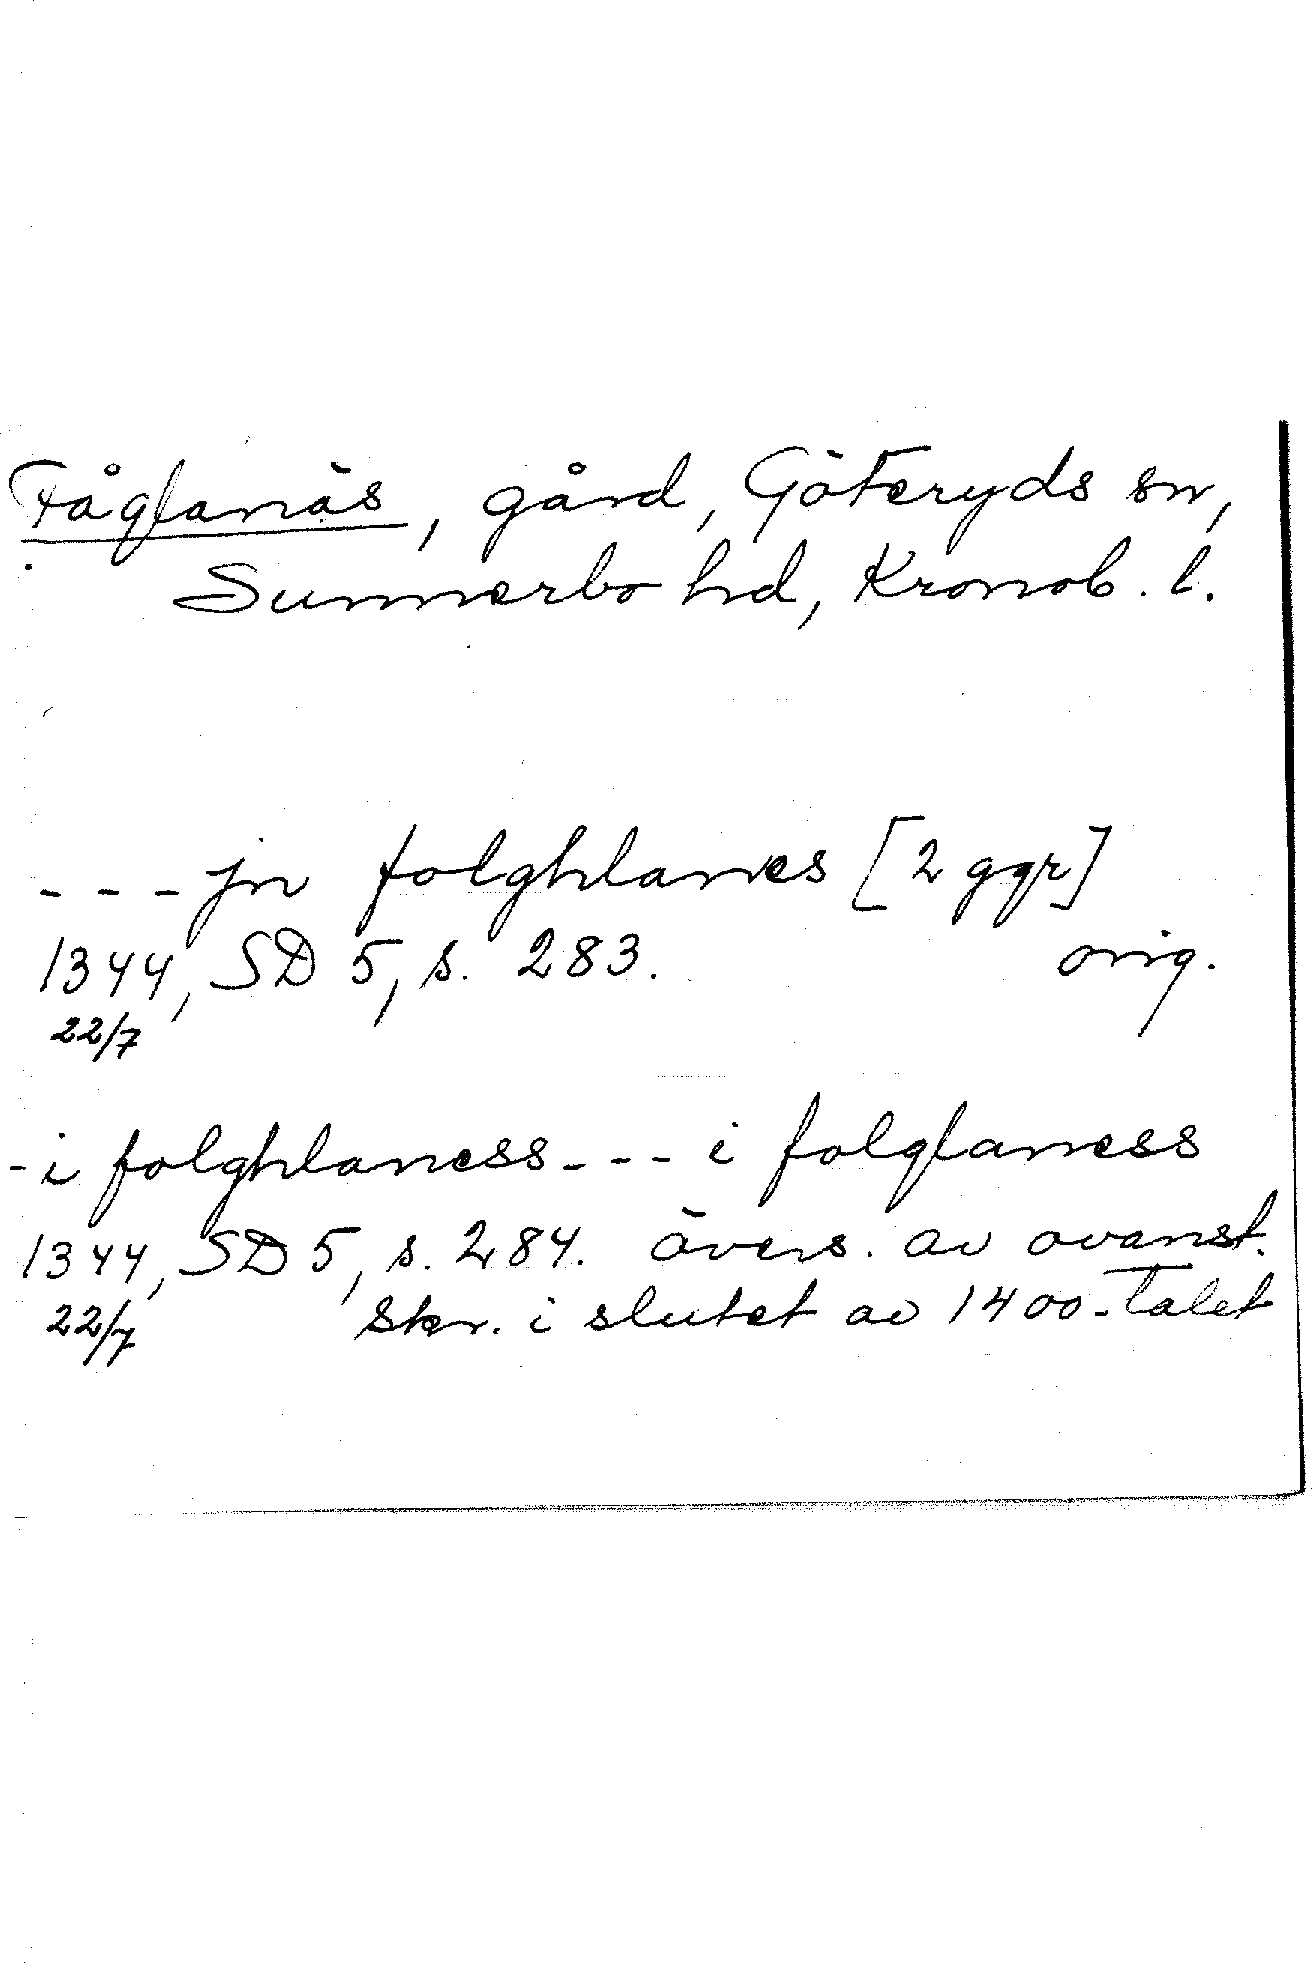 Fåglanäs, gård, Göteryds sn,
Sunnerbo hd, Kronob. l.
- - - jn folghlanes [2 ggr]
1344, SD 5, s. 283. orig.
22/7
- i folghlaness - - - i folglaness
1344, SD 5, s. 284. övers. av ovanst.
22/7 skr. i slutet av 1400-talet